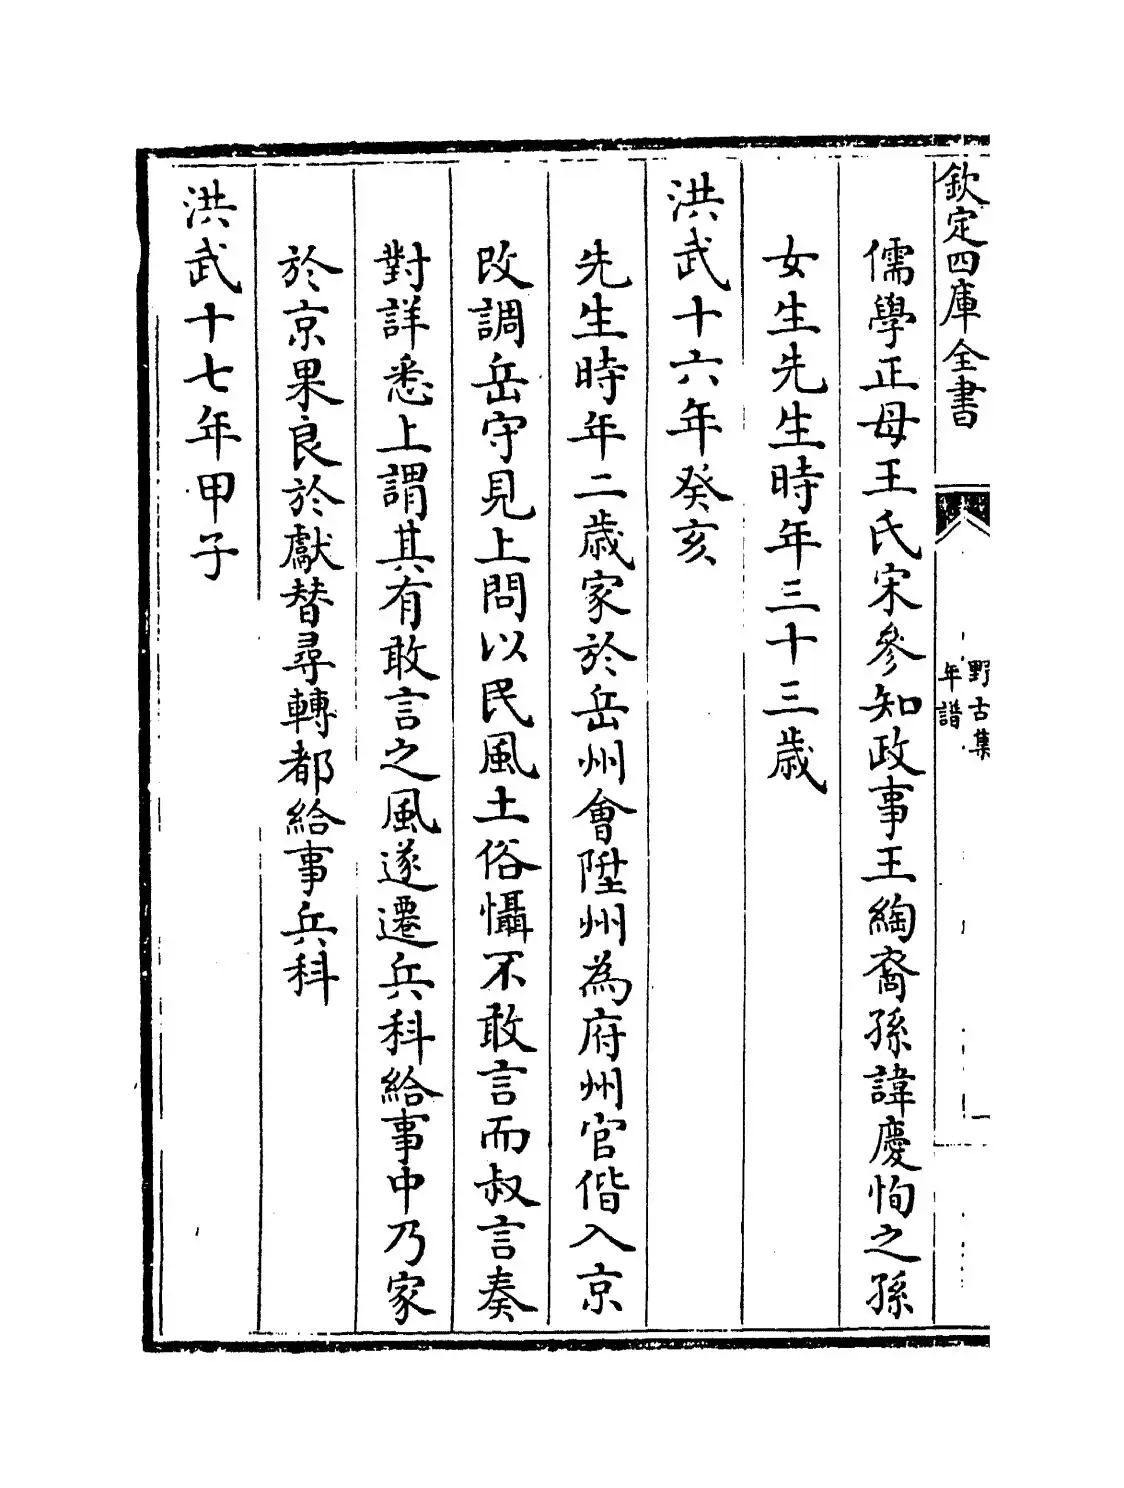 欽定四庫全書
野古集
年譜
儒學正母王氏宋參知政事王綯裔孫諱慶恂之孫
女生先生時年三十三歲
洪武十六年癸亥
先生時年二歲家於岳州會陞州為府州官偕入京
改調岳守見上問以民風土俗懾不敢言而叔言奏
對詳悉上謂其有敢言之風遂遷兵科給事中乃家
於京果良於獻替尋轉都給事兵科
洪武十七年甲子